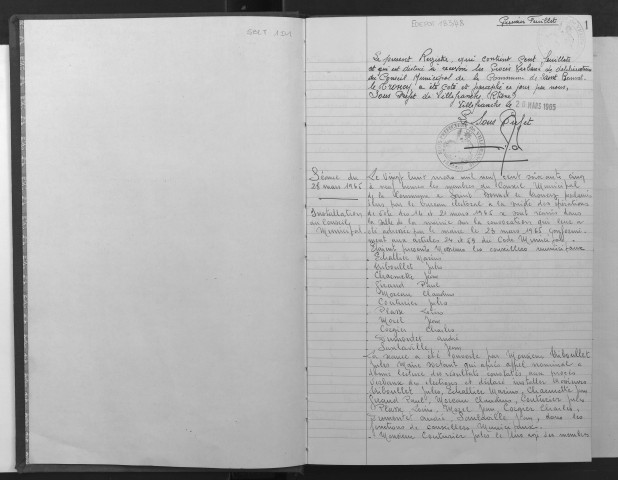 Premier Feuillet
1
Le présent Registre, qui contient cent feuillets
et qui est destiné à recevoir les Procès Verbaux de délibérations
du Conseil Municipal de la Commune de Saint Bonnet
le Troncy, a été coté et paraphé ce jour par nous,
Sous Préfet de Villefranche (Rhône)
Villefranche le 26 MARS 1965
Le Sous Préfet
Séance du
28 mars 1965
Installation
du Conseil
Municipal
Le vingt huit mars mil neuf cent soixante cinq
à neuf heures les membres du Conseil Municipal
de la Commune de Saint Bonnet le Troncy proclamés
élus par le bureau électoral à la suite des opérations
de vote des 14 et 21 mars 1965 se sont réunis dans
la salle de la mairie sur la convocation qui leur a
été adressée par le maire le 23 mars 1965 conformé-
ment aux articles et 59 du Code Municipal.
Étaient présents Messieurs les conseillers municipaux
Echallier Marius
Thiboullet Jules
Charmette Jean
Giraud Paul
Moreau Claudius
Couturier Jules
Plasse Léon
Morel Jean
Corgier Charles
Dumontet André
Jean
La séance a été ouverte par Monsieur Thiboullet
Jules Maire sortant qui après appel nominal a
donné lecture des résultats constatés aux procès
verbaux des élections et déclaré installer Messieurs
Thiboullet Jules, Echallier Marius, Charmette Jean
Giraud Paul, Moreau Claudius, Couturier Jules
Plasse Léon, Morel Jean Corgier Charles,
Dumontet André, Jean, dans les
fonctions de conseillers Municipaux.
Monsieur Couturier Jules le plus âgé des membres